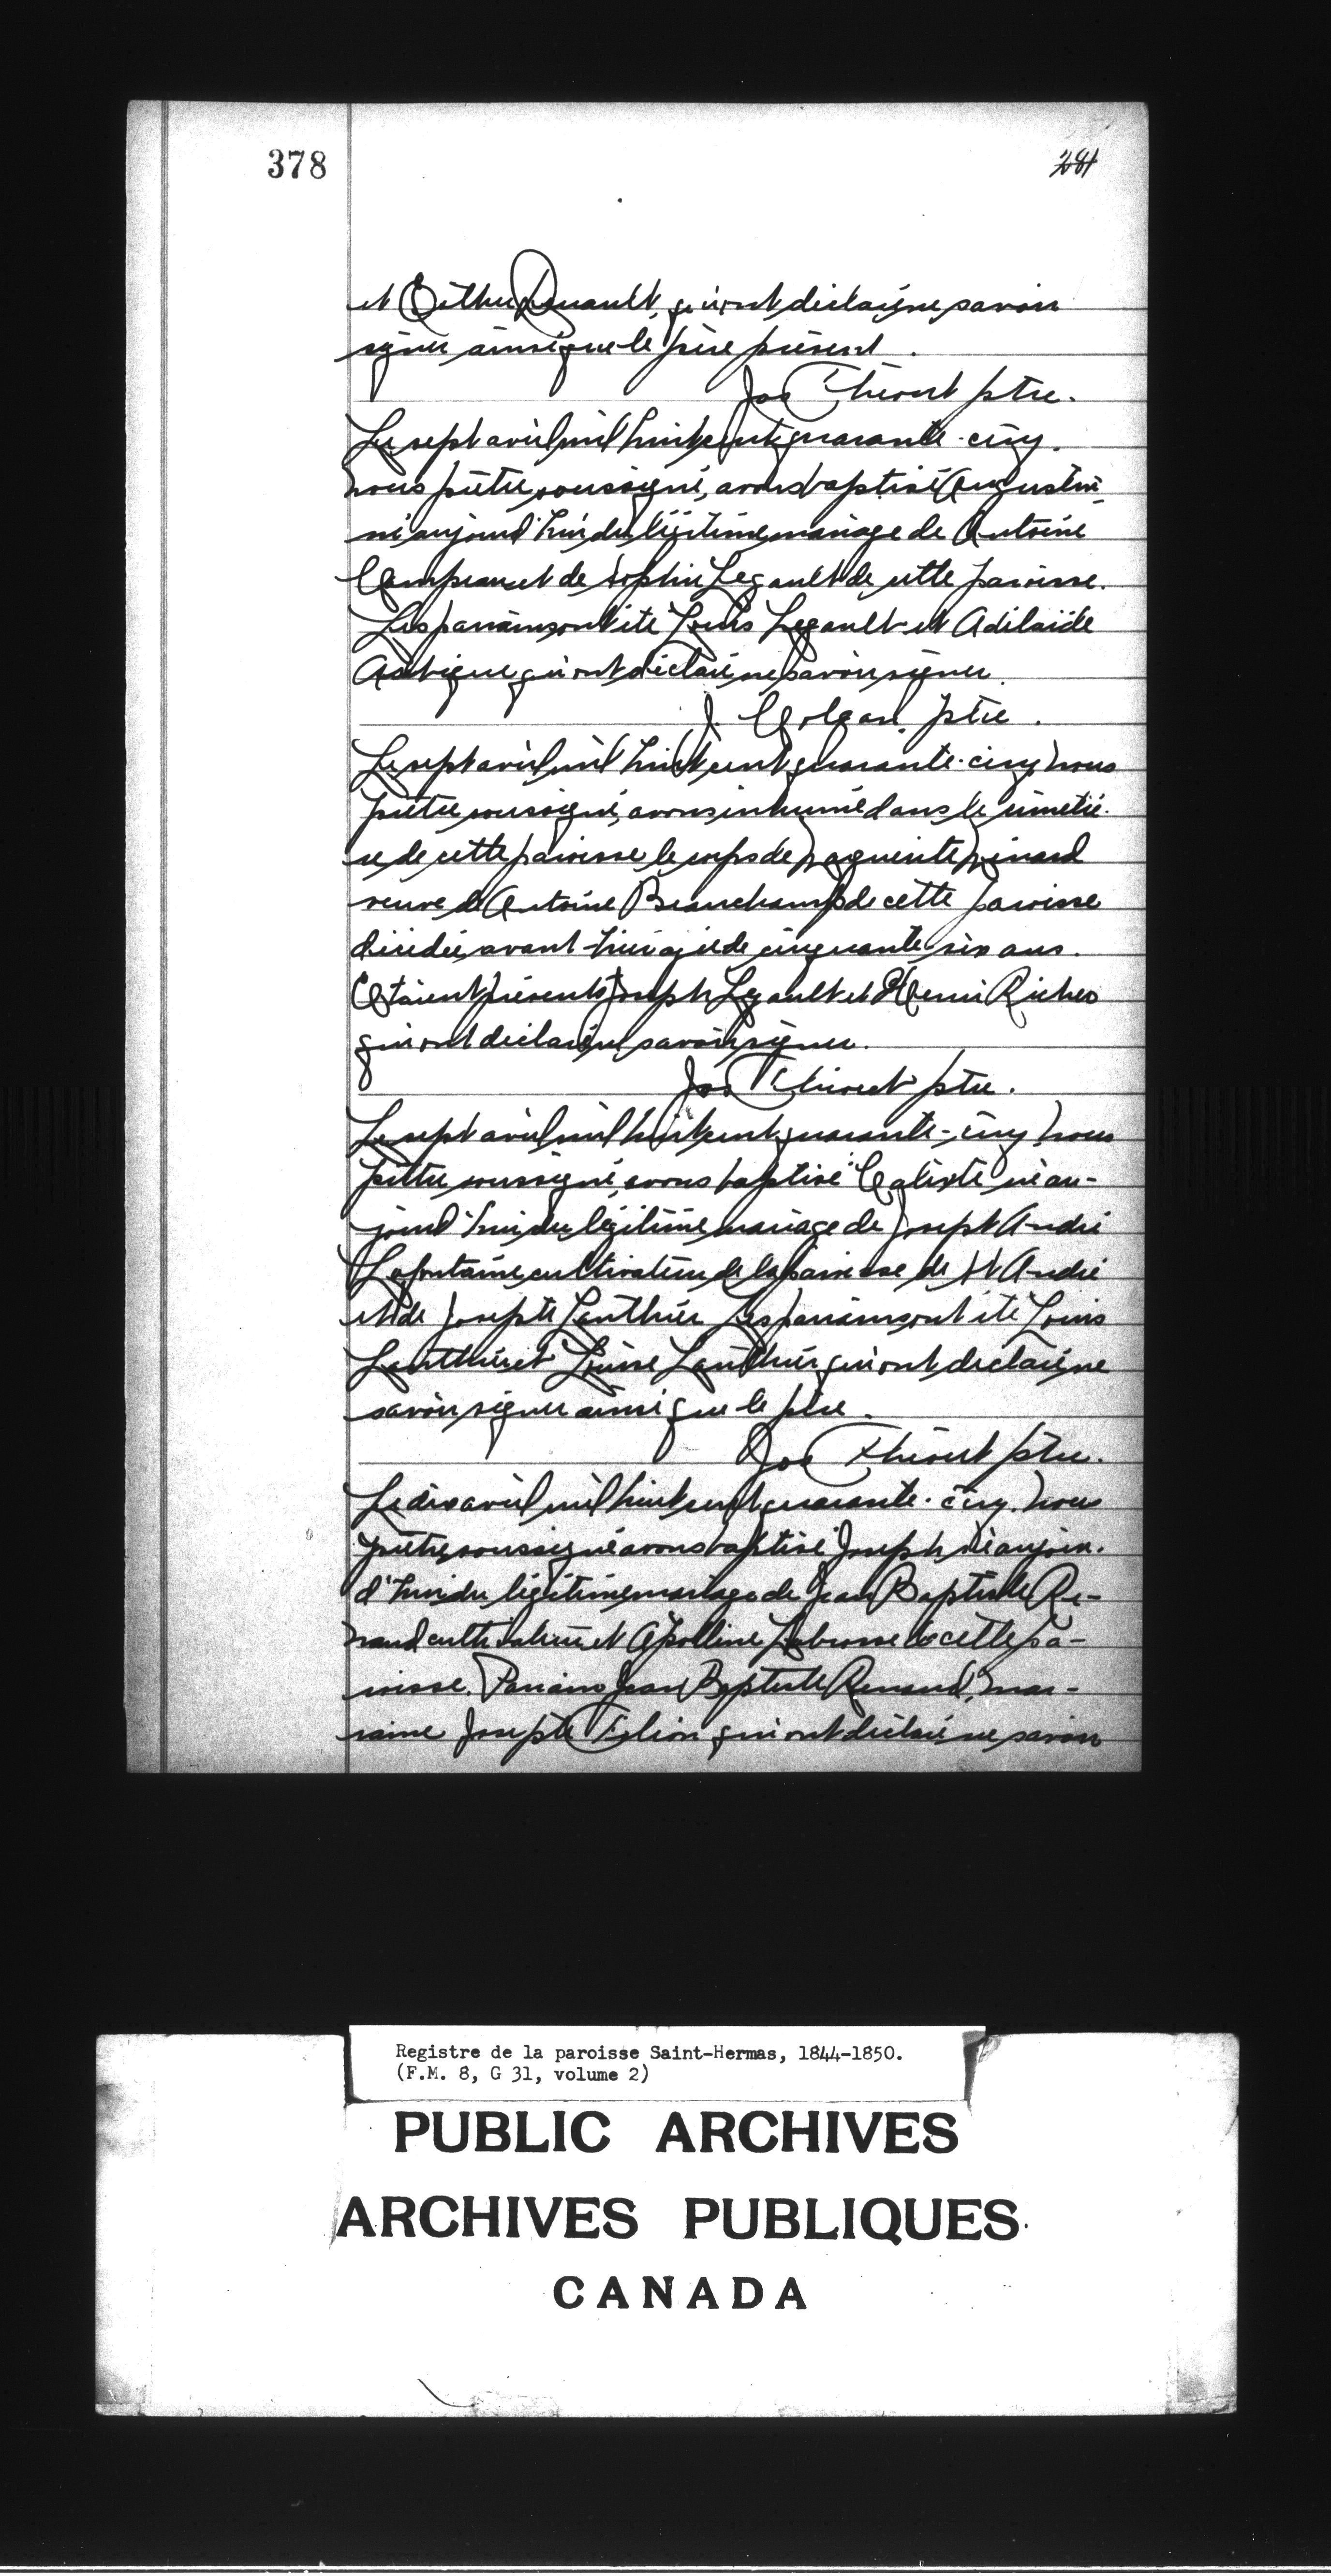 378
281
et Esther Renault, qui ont déclaré ne savoir
signer ainsi que le père présent.
Jos Théoret ptre.
Le sept avril mil huit cent quarante-cinq.
nous prêtre soussigné, avons baptisé Augustin
né aujourd'hui du légitime mariage de Antoine
Campeau et de Sophie Legault de cette paroisse.
Les parrains ont été Louis Legault et Adélaïde
qui ont déclaré ne savoir signer.
J. Colgan. Ptre.
Le sept avril mil huit cent quarante-cinq nous
prêtre soussigné, avons inhumé dans le cimetiè-
re de cette paroisse le corps de Marguerite
veuve de Antoine Beauchamp de cette paroisse
décédée avant-hier agée de cinquante six ans.
Etaient présents Joseph Legault et Henri Richer
qui ont déclaré ne savoir signer.
Jos Théoret ptre.
Le sept avril mil huit cent quarante-cinq nous
prêtre soussigné, avons baptisé Calixte né au-
jourd'hui du légitime mariage de Joseph André
Lafontaine cultivateur de la paroisse de St André
et de Josepte Lanthier Les parrains ont été Louis
Lanthier et Louise Lanthier qui ont déclaré ne
savoir signer ainsi que le père.
Jos Théoret ptre.
Le dix avril mil huit cent quarante-cinq. nous
prêtre soussigné avons baptisé Joseph né aujour.
d'hui du légitime mariage de Jean Baptiste Re-
naud cultivateur et Apolline Labrosse de cette pa-
roisse. Parrain Jean Baptiste Renaud, mar-
raine Josepte Filion qui ont déclaré ne savoir
Registre de la paroisse Saint-Hermas, 1844-1850.
(F.M. 8, G 31, volume 2)
PUBLIC ARCHIVES
ARCHIVES PUBLIQUES
CANADA